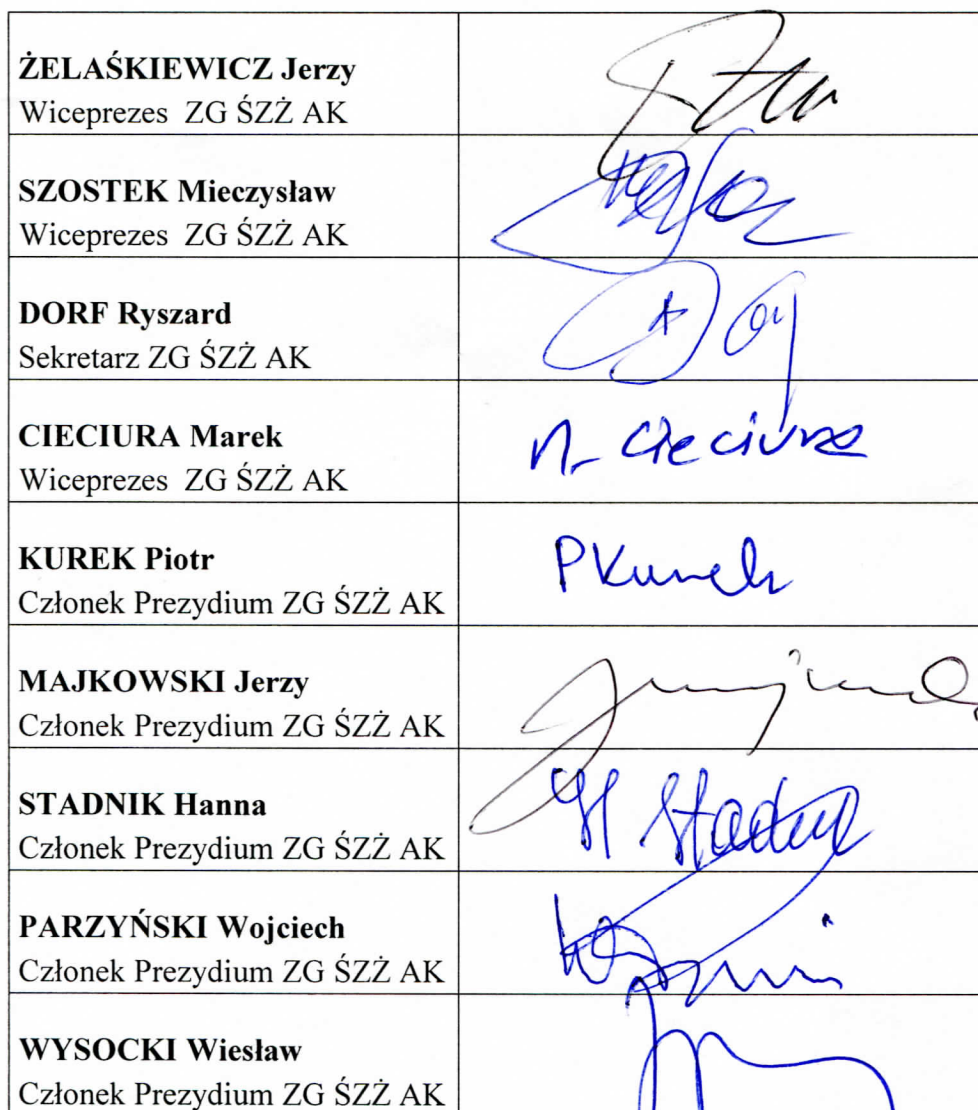 ŻELAŚKIEWICZ Jerzy
Wiceprezes ZG ŚZŻ AK
SZOSTEK Mieczysław
Wiceprezes ZG ŚZŻ AK
DORF Ryszard
Sekretarz ZG ŚZŻ AK
CIECIURA Marek
Wiceprezes ZG ŚZŻ AK
M. Cieciura
KUREK Piotr
Członek Prezydium ZG ŚZŻ AK
PKurek
MAJKOWSKI Jerzy
Członek Prezydium ZG ŚZŻ AK
STADNIK Hanna
Członek Prezydium ZG ŚZŻ AK
PARZYŃSKI Wojciech
Członek Prezydium ZG ŚZŻ AK
WYSOCKI Wiesław
Członek Prezydium ZG ŚZŻ AK